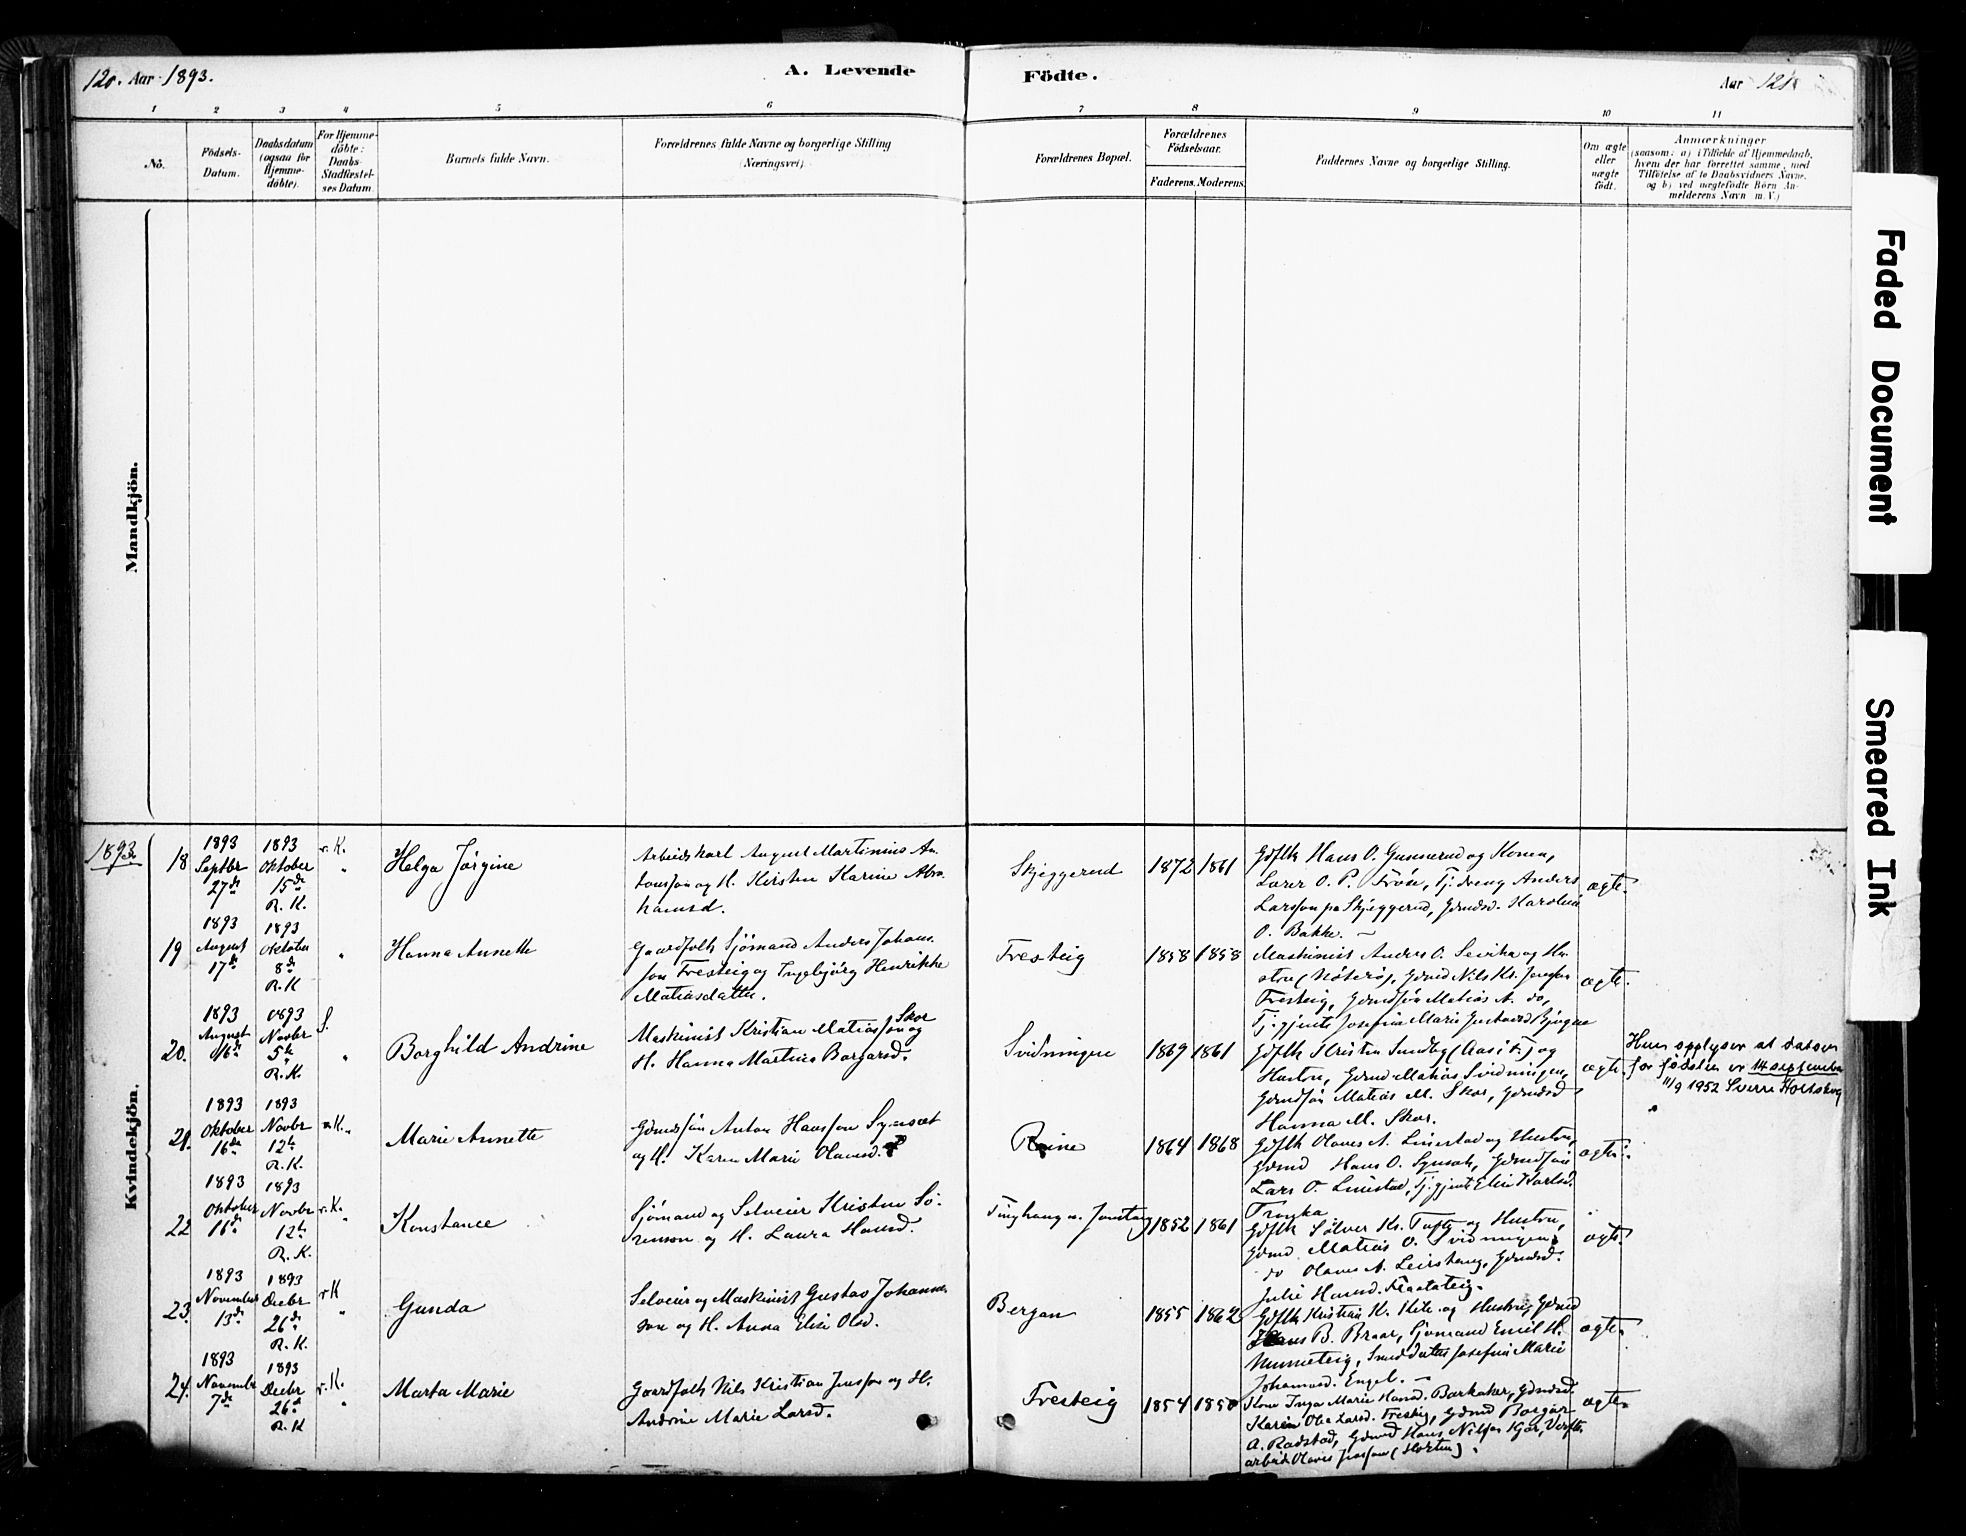 120. Aar 1893.
A. Levende
Födte.
Aar 121
1 2 3 4 5 6 7 8 9 10 11
No.
Födsels-
Datum.
Daabsdatum
(ogsaa for
Hjemme-
döbte).
For Hjemme-
döbte:
Daabs-
Stadfæstel-
ses Datum.
Barnets fulde Navn.
Forældrenes fulde Navne og borgerlige Stilling
(Næringsvei).
Forældrenes Bopæl.
Forældrenes
Födselsaar.
Faderens. Moderens.
Faddernes Navne og borgerlige Stilling.
Om ægte
eller
uægte
födt.
Anmærkninger
(saasom: a) i Tilfælde af Hjemmedaab,
hvem der har forrettet samme, med
Tilföielse af to Daabsvidners Navne,
og b) ved uægtefödte Börn An-
melderens Navn m. V.)
Mandkjön.
Kvindekjön.
1893
18
1893
Septbr
27de
1893
Oktober
15de
R. K.
v. K.
Helga Jørgine
Arbeidskarl August Martinius An-
tonsson og H. Kirsten Karine Abra-
hamsd.
Skjeggerud
1872 1861
Gdflk Hans O. Gunnerud og Kone,
Lærer O. P. Frøse, Tj. dreng Anders
Larsson pa Skjeggerud, Gdmdsd. Karoline
O. Bakke.
ægte.
19
1893
August
17de
1893
Oktober
8de
R. K
Hanna Annette
Gaardfolk Sjømand Anders Johans-
son Fresteig og Ingebjørg Henrikke
Matiasdatter.
Fresteig
1858 1858
Maskinist Anders O. Sevika og Hu-
stru (Nøterø), Gdmd Nils Kr. Jensson
Fresteig, Gdmdsøn Matias A. do,
Tj. gjente Josefine Marie
ægte.
20.
1893
August
16de
1893
Novbr
5te
R. K.
S.
Borghild Andrine
Maskinist Kristian Matiasson Skor og
H. Hanna Martine Borgersd.
Svidningen
1869 1861
Gdflk Kristen Sundby (Aas i F.) og
Hustru, Gdmd Matias Svidningen,
Gdmdsøn Matias M. Skor, Gdmdsd
Hanna M. Skor.
ægte.
Hun opplyser at datoen
for fødselen er 14 september
11/9 1952 Sverre Holtskog
21.
1893
Oktober
16de
1893
Novbr
12te
R. K.
v. K.
Marie Annette
Gdmdsøn Anton Hansson Synsæt
og H. Karen Marie Olavsd.
Reine
1864 1868
Gdflk Olaves A. Linestad og Hustru,
Gdmd Hans O. Synsæt, Gdmdsøn
Lars O. Linestad, Tj. gjente Elise Karlsd.
ægte.
22
1893
Oktober
16de
1893
Novbr
12te
R. K.
v. K.
Konstance
Sjømand og Selveier Kristen Sø-
renson og H. Laura Hansd.
1852 1861
Gdflk Sølver Kr. Tufte og Hustru,
Gdmd Matias O. Svidningen,
do Olaves A. Leirsteng, Gdmdsd.
Julie Hansd.
ægte.
23.
1893
November
13de
1893
Decbr
26de
R. K.
v. K
Gunda
Selveier og Maskinist Gustav Johannes-
son og H. Anna Elise Olsd.
Bergan
1855 1862
Gdflk Kristian K. og Hustru, Gdmd
Hans B. Braar, Sjømand Emil H.
Unneteig, Smeddatter Josefine Marie
Johannesd. Engel.
ægte.
24.
1893
Novembr
7de
1893
Decbr
26de
R. K
v. K.
Marta Marie
Gaardfolk Nils Kristian Jensson og H.
Andrine Marie Larsd.
Fresteig
1854 1850
Kone Inga Marie Hansd. Barkaker, Gdmdsd.
Karen Olie Larsd. Fresteig, Gdmd Borgar
A. Rodstad, Gdmd Hans Nilsson Kjær, Verfts-
arbeid. Olaves Jensson (Horten).
ægte.
Faded Document
Smeared Ink